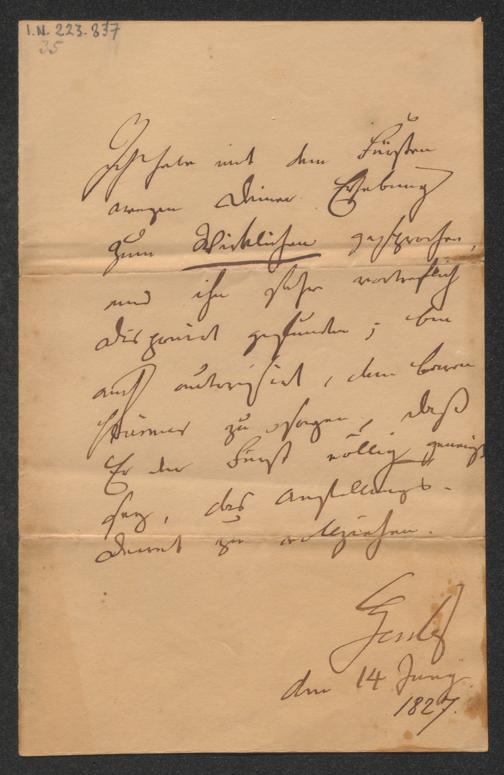 I.N. 223.837
35
Ich habe mit dem Fürsten
wegen Deiner Erhebung
zum Wirklichen gesprochen,
und ihn sehr vortreflich
disponirt gefunden; bin
auch autorisirt, dem Baron
Stürmer zu sagen, daß
Er der Fürst völlig geneigt
sey, das Anstellungs-
Decret zu vollziehen.
Gentz
den 14 Juny
1827.